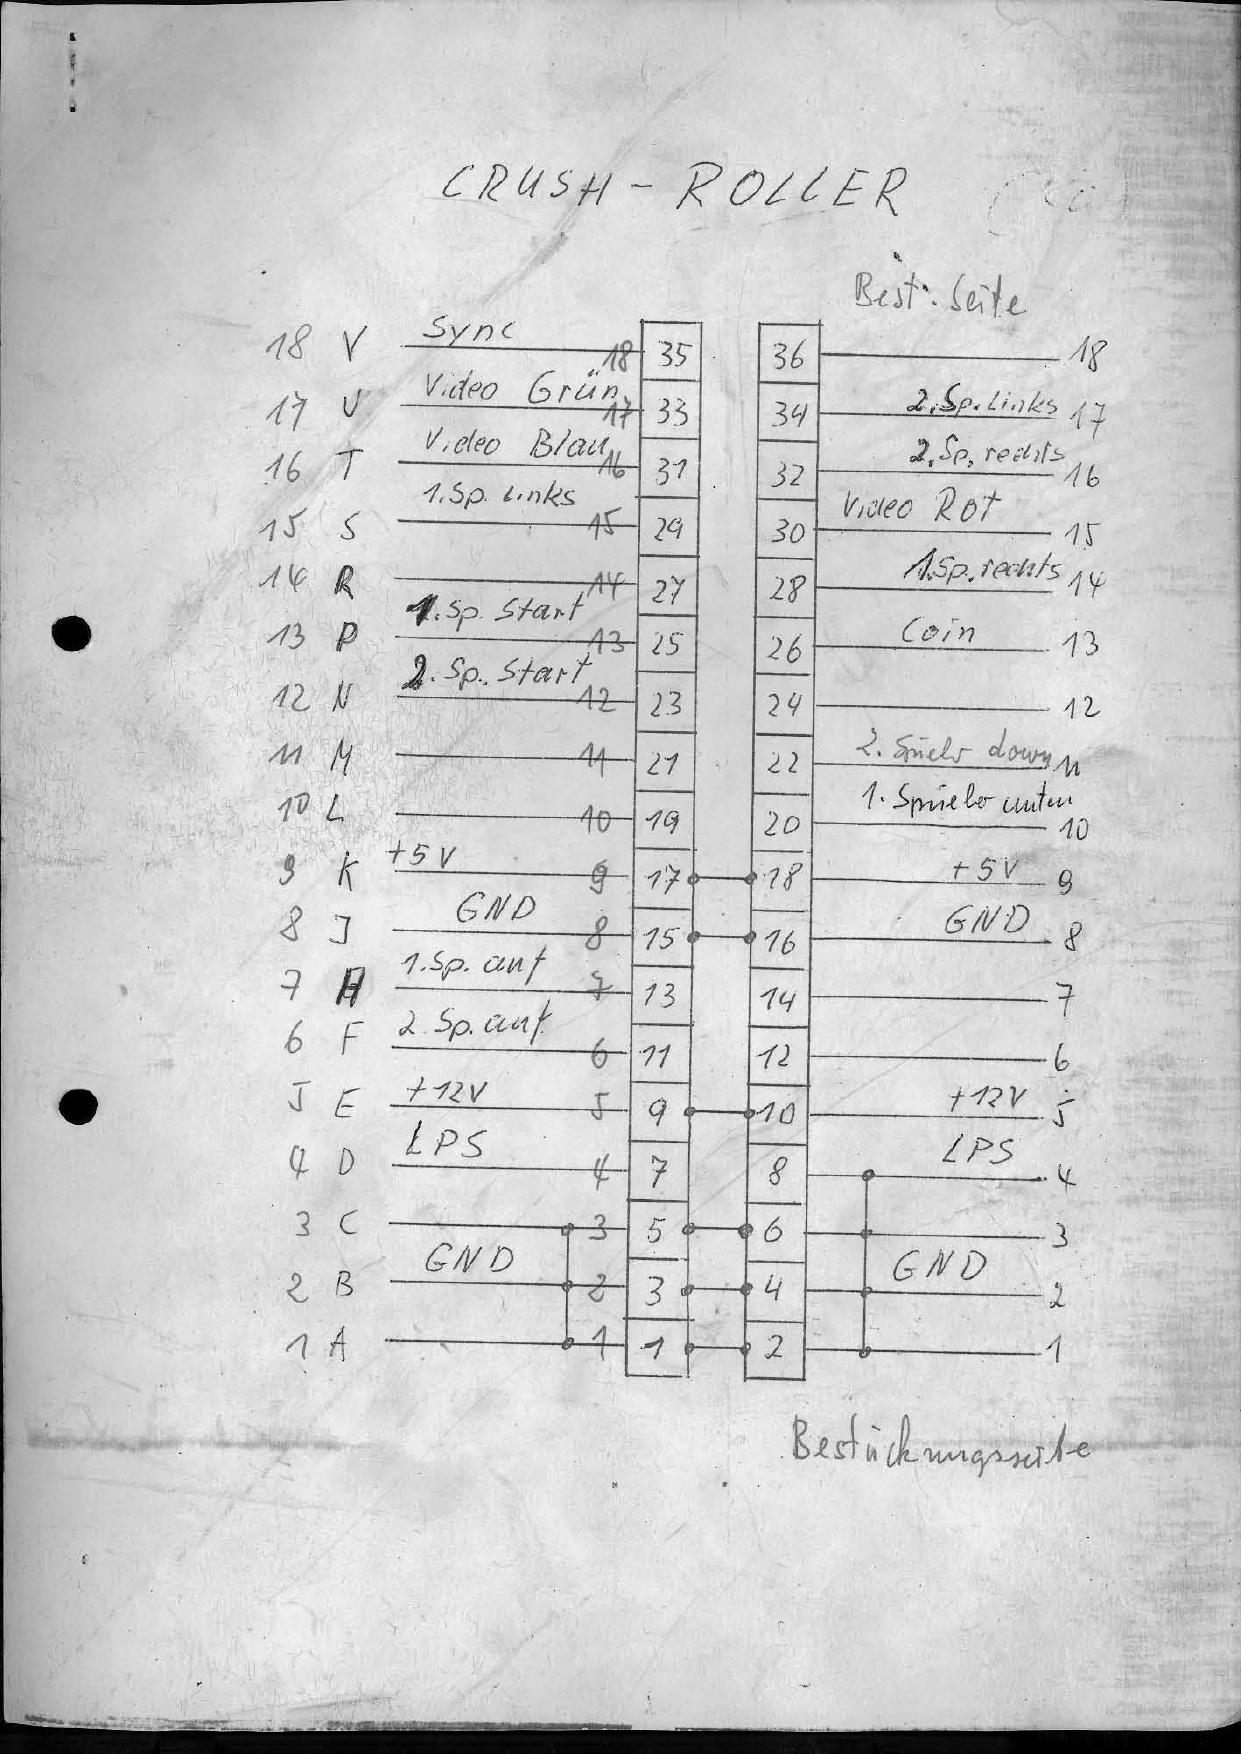 CRUSH-ROLLER
Best. Seite
18 V Sync 18 35 36 18
17 U Video Grün 17 33 34 2.Sp.Links 17
16 T Video Blau 16 31 32 2.Sp. rechts 16
15 S 1.Sp. Links 15 29 30 Video Rot 15
14 R 14 27 28 1.Sp.rechts 14
13 P 1.Sp. Start 13 25 26 Coin 13
12 N 2.Sp. Start 12 23 24 12
11 M 11 21 22 2. Spieler down 11
10 L 10 19 20 1. Spieler unten 10
9 K +5V 9 17 18 +5V 9
8 J GND 8 15 16 GND 8
7 H 1.Sp. auf 7 13 14 7
6 F 2.Sp. auf 6 11 12 6
5 E +12V 5 9 10 +12V 5
4 D LPS 4 7 8 LPS 4
3 C 3 5 6 3
2 B GND 2 3 4 GND 2
1 A 1 1 2 1
Bestückungsseite